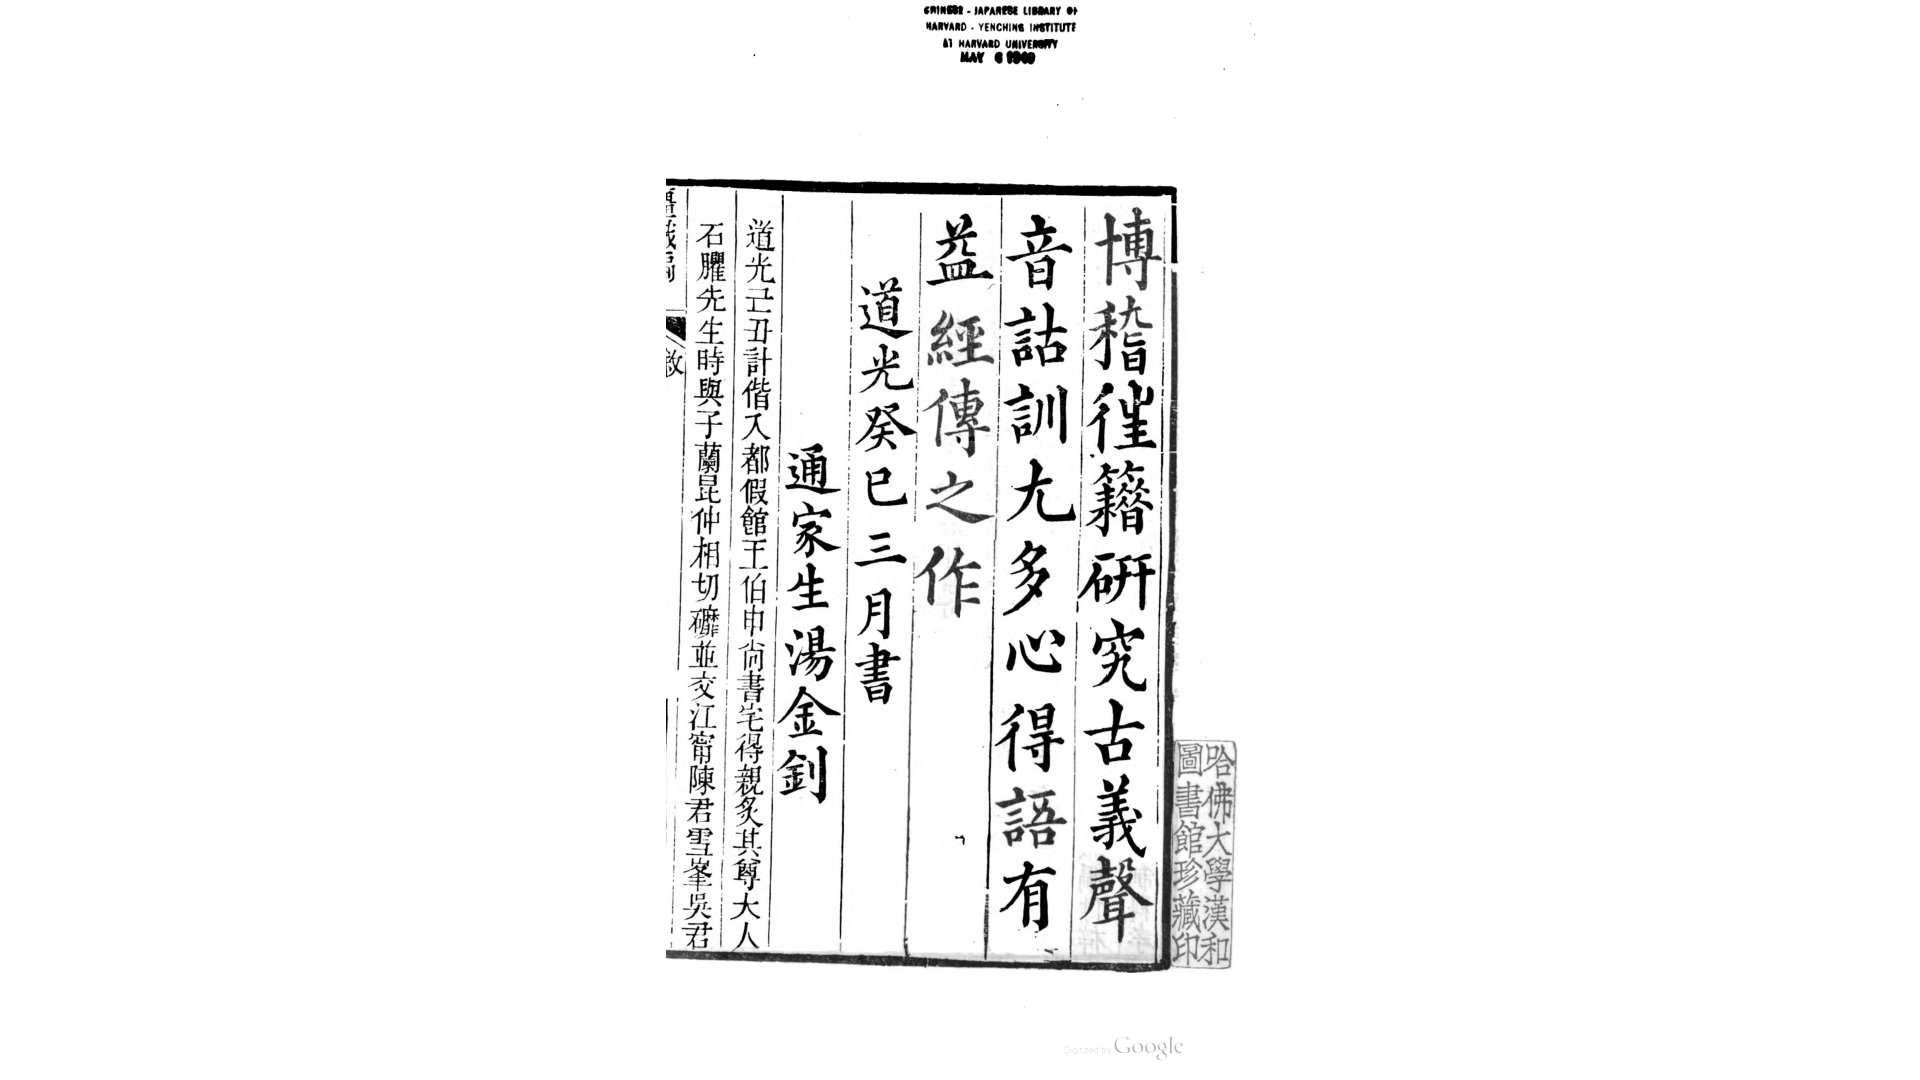 CHINESE - JAPANESE LIBRARY OF
HARVARD - YENCHING INSTITUTE
AT HARVARD UNIVERSITY
MAY 6 1940
博稽徃籍研究古義聲
音詁訓尢多心得語有
益經傳之作
道光癸巳三月書
通家生湯金釗
道光己丑計偕入都假館王伯申尙書宅得親炙其尊大人
石臞先生時與子蘭昆仲相切礳並交江甯陳君雪峯吳君
敘
哈佛大學漢和
圖書館珍藏印
Digitized by Google